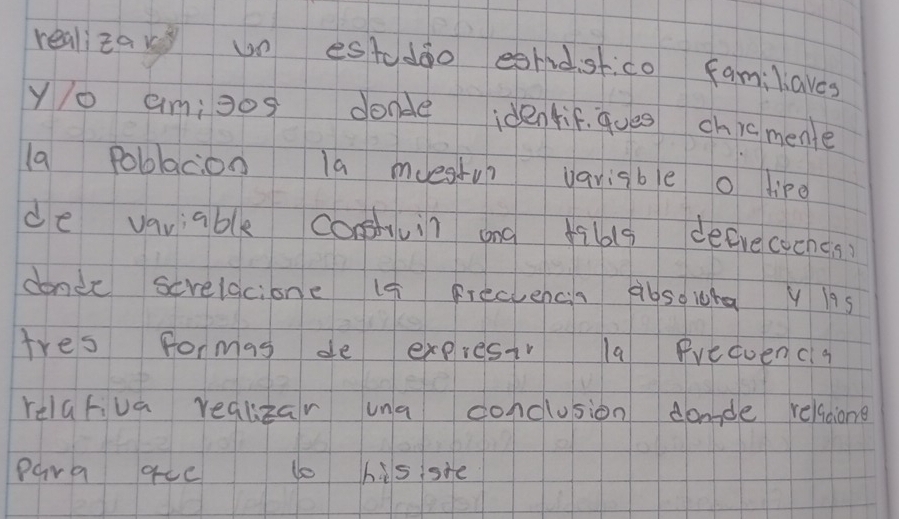 realizar un estudio estadistico familiares
y/o amigos donde identifiques claramente
la Poblacion la muestra variable o tipo
de variable construir una tabla defrecuencia
donde serelacione la frecuencia absoluta y las
tres formas de expresar la frecuencia
relativa realizar una conclusion donde relacione
para que lo hisiste